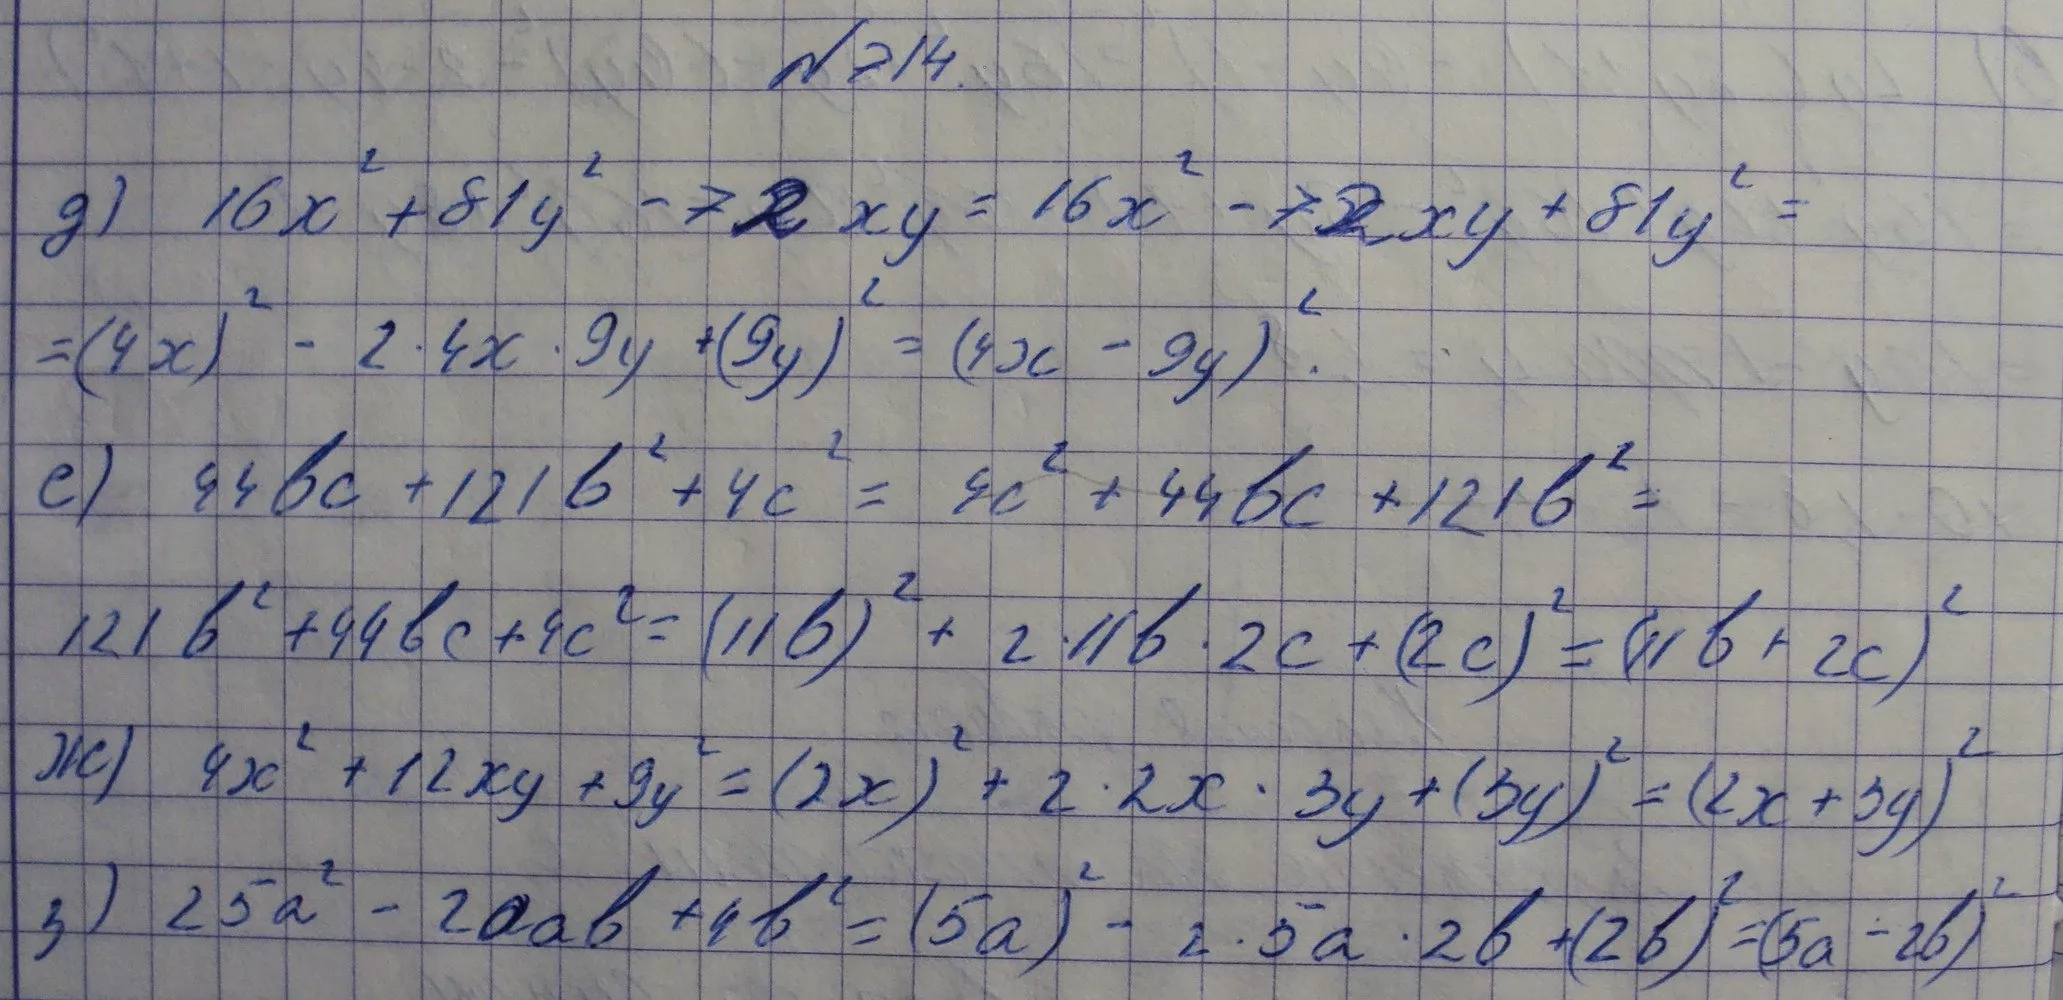 №714.
д) 16x² + 81y² - 72xy = 16x² - 72xy + 81y² =
= (4x)² - 2·4x·9y + (9y)² = (4x - 9y)².
е) 44bc + 121b² + 4c² = 4c² + 44bc + 121b² =
121b² + 44bc + 4c² = (11b)² + 2·11b·2c + (2c)² = (11b + 2c)²
ж) 4x² + 12xy + 9y² = (2x)² + 2·2x·3y + (3y)² = (2x + 3y)²
з) 25a² - 20ab + 4b² = (5a)² - 2·5a·2b + (2b)² = (5a - 2b)²